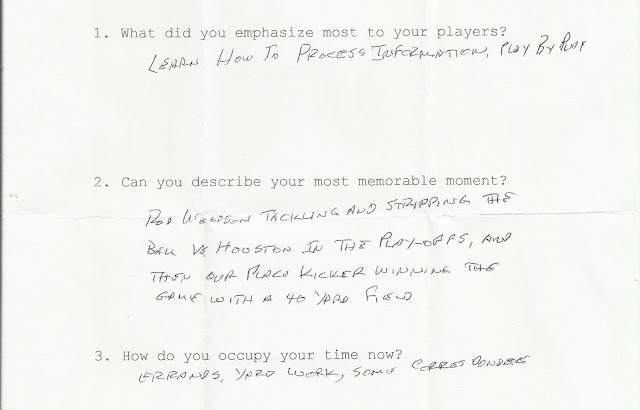 1. What did you emphasize most to your players?
LEARN HOW TO PROCESS INFORMATION, PLAY BY PLAY
2. Can you describe your most memorable moment?
ROD WOODSON TACKLING AND STRIPPING THE
BALL VS HOUSTON IN THE PLAY-OFFS, AND
THEN OUR PLACE KICKER WINNING THE
GAME WITH A 40 YARD FIELD
3. How do you occupy your time now?
ERRANDS, YARD WORK, SOME